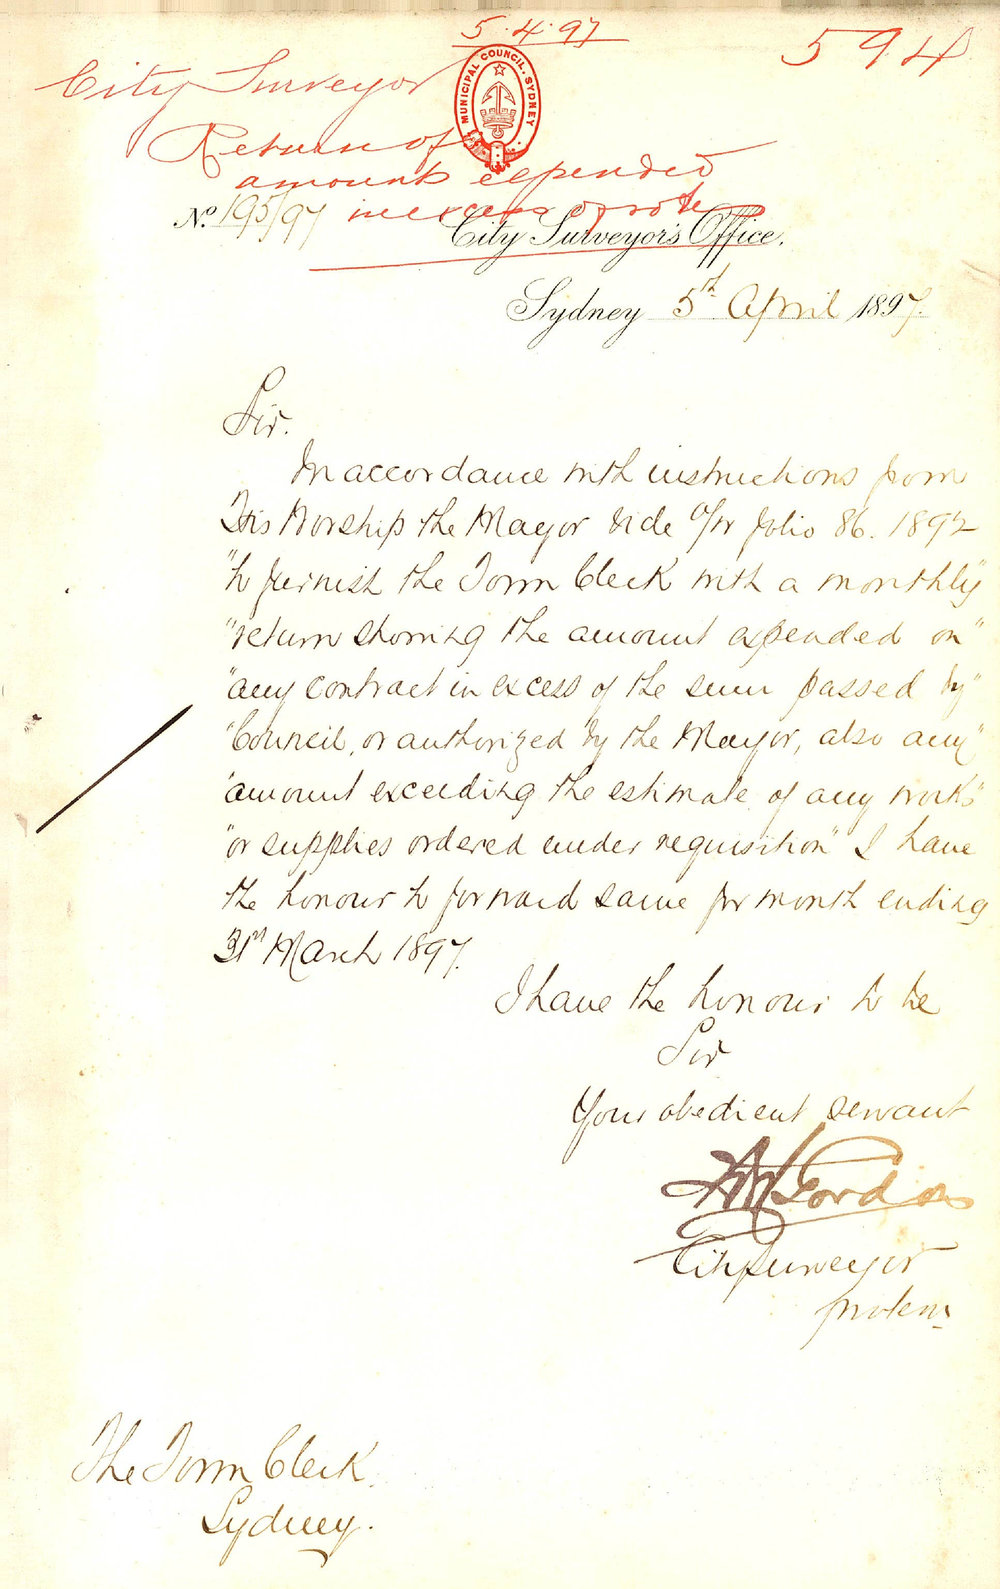 5.4.97
594
City Surveyor
MUNICIPAL COUNCIL. SYDNEY
Return of
amounts expended
in excess of votes
No. 195/97
City Surveyor's Office.
Sydney 5th April 1897.
Sir.
In accordance with instructions from
His Worship the Mayor vide folio 86. 1892
"to furnish the Town Clerk with a monthly"
"return showing the amount expended on"
"any contract in excess of the sum passed by"
"Council, or authorized by the Mayor, also any"
"amount exceeding the estimate of any works"
"or supplies ordered under requisition" I have
the honour to forward same for month ending
31st March 1897.
I have the honour to be
Sir
Your obedient servant
Gordon
City Surveyor
protem
The Town Clerk
Sydney.